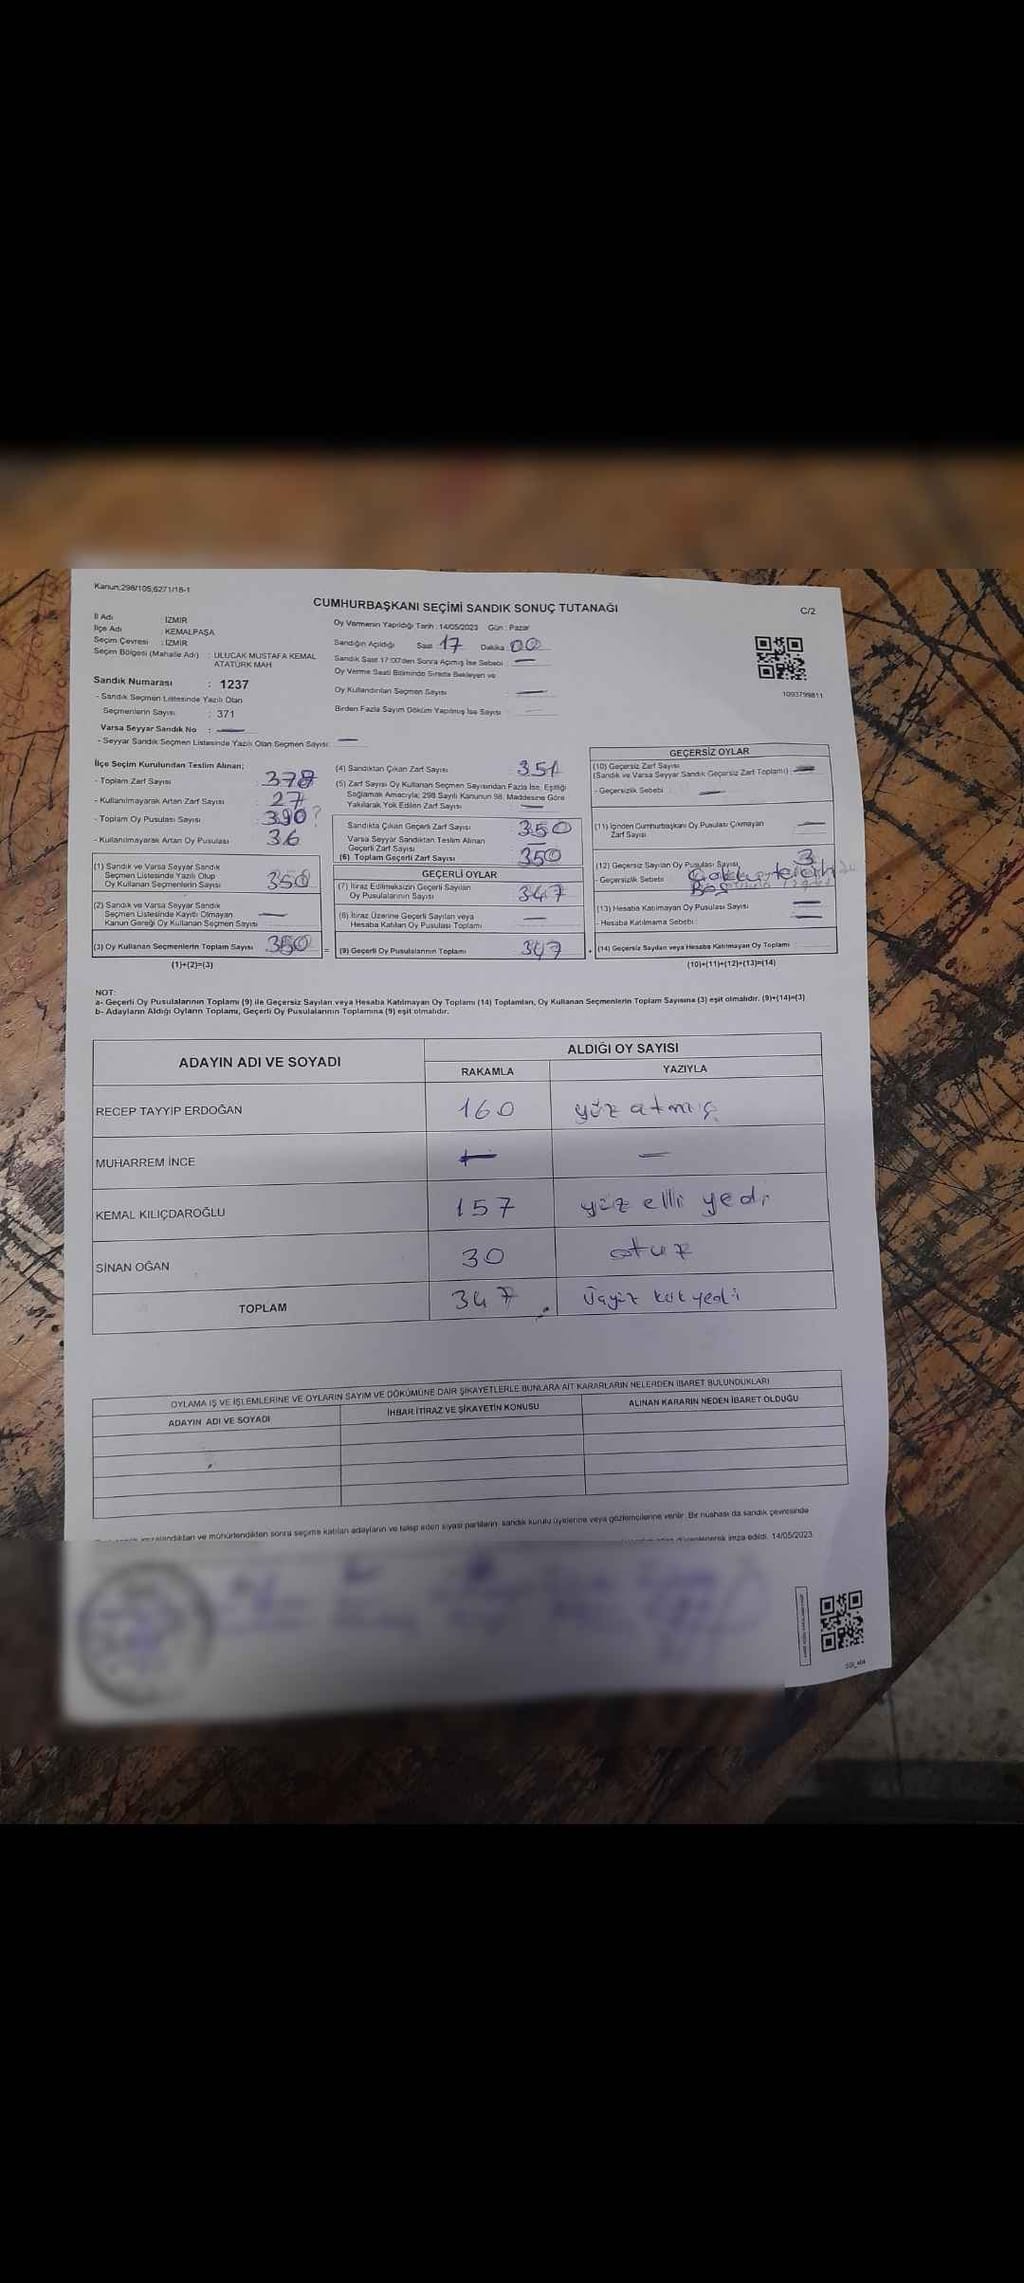 Kanun:298/105;6271/18-1
CUMHURBAŞKANI SEÇİMİ SANDIK SONUÇ TUTANAĞI
C/2
İl Adı : İZMİR
İlçe Adı : KEMALPAŞA
Seçim Çevresi : İZMİR
Seçim Bölgesi (Mahalle Adı) : ULUCAK MUSTAFA KEMAL
ATATÜRK MAH
Sandık Numarası : 1237
- Sandık Seçmen Listesinde Yazılı Olan
Seçmenlerin Sayısı : 371
Varsa Seyyar Sandık No : —
- Seyyar Sandık Seçmen Listesinde Yazılı Olan Seçmen Sayısı: —
Oy Vermenin Yapıldığı Tarih : 14/05/2023 Gün : Pazar
Sandığın Açıldığı Saat 17 Dakika 00
Sandık Saat 17:00'den Sonra Açılmış İse Sebebi : —
Oy Verme Saati Bitiminde Sırada Bekleyen ve
Oy Kullandırılan Seçmen Sayısı : —
Birden Fazla Sayım Döküm Yapılmış İse Sayısı : —
1093799811
İlçe Seçim Kurulundan Teslim Alınan;
- Toplam Zarf Sayısı 378
- Kullanılmayarak Artan Zarf Sayısı 27
- Toplam Oy Pusulası Sayısı 390?
- Kullanılmayarak Artan Oy Pusulası 36
(1) Sandık ve Varsa Seyyar Sandık
Seçmen Listesinde Yazılı Olup
Oy Kullanan Seçmenlerin Sayısı 350
(2) Sandık ve Varsa Seyyar Sandık
Seçmen Listesinde Kayıtlı Olmayan
Kanun Gereği Oy Kullanan Seçmen Sayısı —
(3) Oy Kullanan Seçmenlerin Toplam Sayısı 350
(1)+(2)=(3)
(4) Sandıktan Çıkan Zarf Sayısı 351
(5) Zarf Sayısı Oy Kullanan Seçmen Sayısından Fazla İse, Eşitliği
Sağlamak Amacıyla; 298 Sayılı Kanunun 98. Maddesine Göre
Yakılarak Yok Edilen Zarf Sayısı —
Sandıkta Çıkan Geçerli Zarf Sayısı 350
Varsa Seyyar Sandıktan Teslim Alınan
Geçerli Zarf Sayısı —
(6) Toplam Geçerli Zarf Sayısı 350
GEÇERLİ OYLAR
(7) İtiraz Edilmeksizin Geçerli Sayılan
Oy Pusulalarının Sayısı 347
(8) İtiraz Üzerine Geçerli Sayılan veya
Hesaba Katılan Oy Pusulası Toplamı —
(9) Geçerli Oy Pusulalarının Toplamı 347
GEÇERSİZ OYLAR
(10) Geçersiz Zarf Sayısı
(Sandık ve Varsa Seyyar Sandık Geçersiz Zarf Toplamı) —
- Geçersizlik Sebebi : —
(11) İçinden Cumhurbaşkanı Oy Pusulası Çıkmayan
Zarf Sayısı —
(12) Geçersiz Sayılan Oy Pusulası Sayısı 3
- Geçersizlik Sebebi
Boş
(13) Hesaba Katılmayan Oy Pusulası Sayısı —
- Hesaba Katılmama Sebebi : —
(14) Geçersiz Sayılan veya Hesaba Katılmayan Oy Toplamı
(10)+(11)+(12)+(13)=(14)
NOT:
a- Geçerli Oy Pusulalarının Toplamı (9) ile Geçersiz Sayılan veya Hesaba Katılmayan Oy Toplamı (14) Toplamları, Oy Kullanan Seçmenlerin Toplam Sayısına (3) eşit olmalıdır. (9)+(14)=(3)
b- Adayların Aldığı Oyların Toplamı, Geçerli Oy Pusulalarının Toplamına (9) eşit olmalıdır.
ADAYIN ADI VE SOYADI
ALDIĞI OY SAYISI
RAKAMLA YAZIYLA
RECEP TAYYİP ERDOĞAN 160 yüz atmış
MUHARREM İNCE — —
KEMAL KILIÇDAROĞLU 157 yüz elli yedi
SİNAN OĞAN 30 otuz
TOPLAM 347 Üçyüz kırk yedi
OYLAMA İŞ VE İŞLEMLERİNE VE OYLARIN SAYIM VE DÖKÜMÜNE DAİR ŞİKAYETLERLE BUNLARA AİT KARARLARIN NELERDEN İBARET BULUNDUKLARI
ADAYIN ADI VE SOYADI İHBAR İTİRAZ VE ŞİKAYETİN KONUSU ALINAN KARARIN NEDEN İBARET OLDUĞU
imzalandıktan ve mühürlendikten sonra seçime katılan adayların ve talep eden siyasi partilerin, sandık kurulu üyelerine veya gözlemcilerine verilir. Bir nüshası da sandık çevresinde
düzenlenerek imza edildi. 14/05/2023